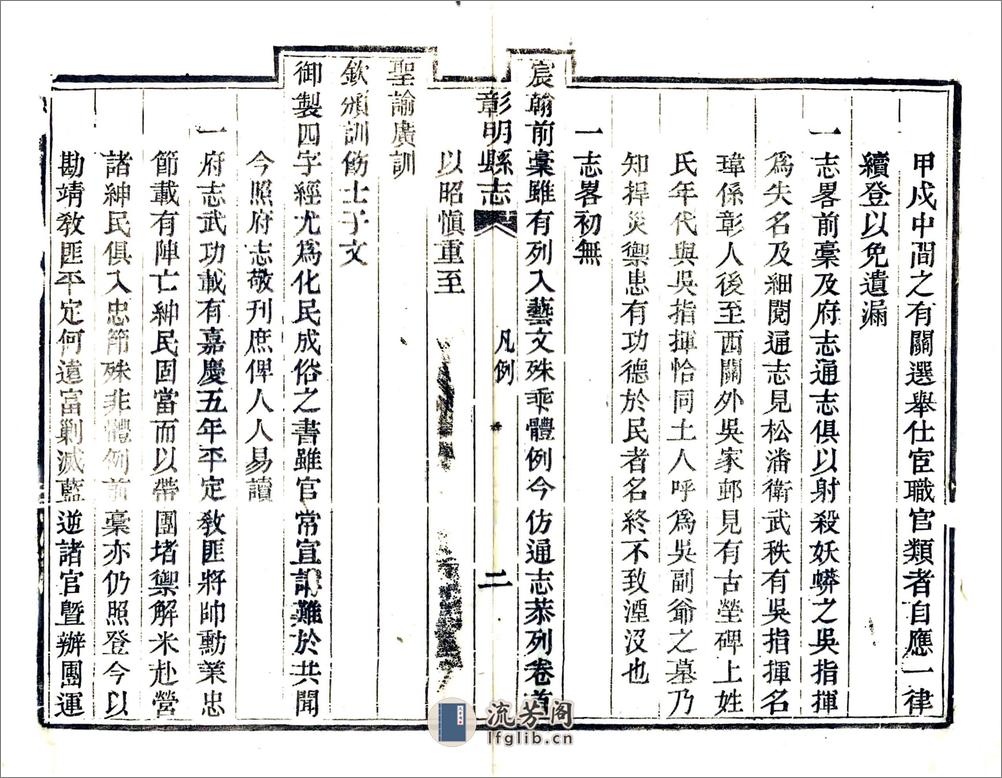 甲戍中間之有關選舉仕宦職官類者自應一律
續登以免遺漏
一志畧前稾及府志通志俱以射殺妖蟒之吳指揮
爲失名及細閱通志見松潘衛武秩有吳指揮名
瑋係彰人後至西關外吳家邨見有古塋碑上姓
氏年代與吳指揮恰同土人呼爲吳副爺之墓乃
知捍災禦患有功德於民者名終不致湮沒也
一志畧初無
宸翰前稾雖有列入藝文殊乖體例今仿通志恭列卷首
彰明縣志 凡例 二
以昭愼重至
聖諭廣訓
欽頒訓飭士子文
御製四字經尤爲化民成俗之書雖官常宣講難於共聞
今照府志敬刊庶俾人人易讀
一府志武功載有嘉慶五年平定敎匪將帥勳業忠
節載有陣亡紳民固當而以帶團堵禦解米赴營
諸紳民俱入忠節殊非體例前稾亦仍照登今以
勘靖敎匪平定何遠富剿滅藍逆諸官曁辦團運
流芳阁
lfglib.cn